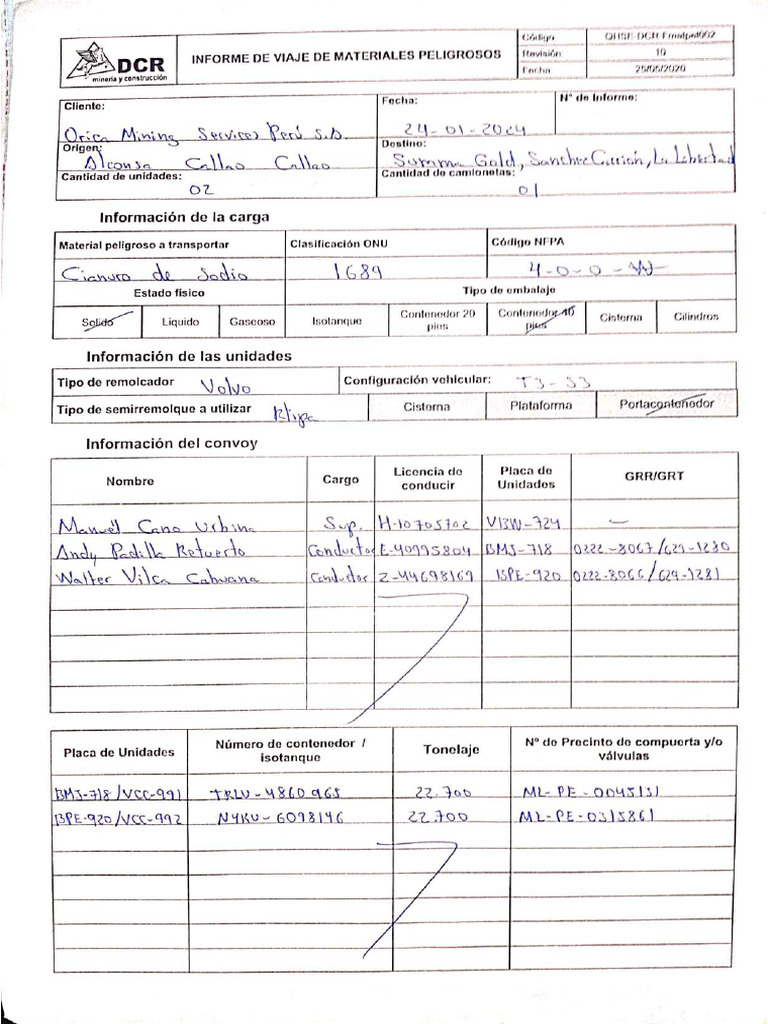 DCR
minería y construcción
INFORME DE VIAJE DE MATERIALES PELIGROSOS
Código QHSE-DCR-Fmatpel002
Revisión 10
Fecha 25/05/2020
Cliente: Fecha: N° de Informe:
Orica Mining Services Perú S.A. 24-01-2024
Origen: Destino:
Alconsa Callao Callao Gold, Sanchez Carrión, La Libertad
Cantidad de unidades: Cantidad de camionetas:
02 01
Información de la carga
Material peligroso a transportar Clasificación ONU Código NFPA
Cianuro de Sodio 1689 4-0-0-W
Estado físico Tipo de embalaje
Solido Liquido Gaseoso Isotanque Contenedor 20 pies Contenedor 40 pies Cisterna Cilindros
Información de las unidades
Tipo de remolcador Volvo Configuración vehicular: T3-S3
Tipo de semirremolque a utilizar Cisterna Plataforma Portacontenedor
Información del convoy
Nombre Cargo Licencia de conducir Placa de Unidades GRR/GRT
Manuel Cano Urbina Sup. H-10705702 VBW-724 —
Andy Padilla Retuerto Conductor E-40995804 BMJ-718 0222-8067/629-1280
Walter Vilca Cahuana Conductor Z-44698169 BPE-920 0222-8066/629-1281
Placa de Unidades Número de contenedor / isotanque Tonelaje N° de Precinto de compuerta y/o válvulas
BMJ-718/VCC-991 TRLU-4860965 22.700 ML-PE-0045131
BPE-920/VCC-992 NYKU-6098146 22.700 ML-PE-0315861